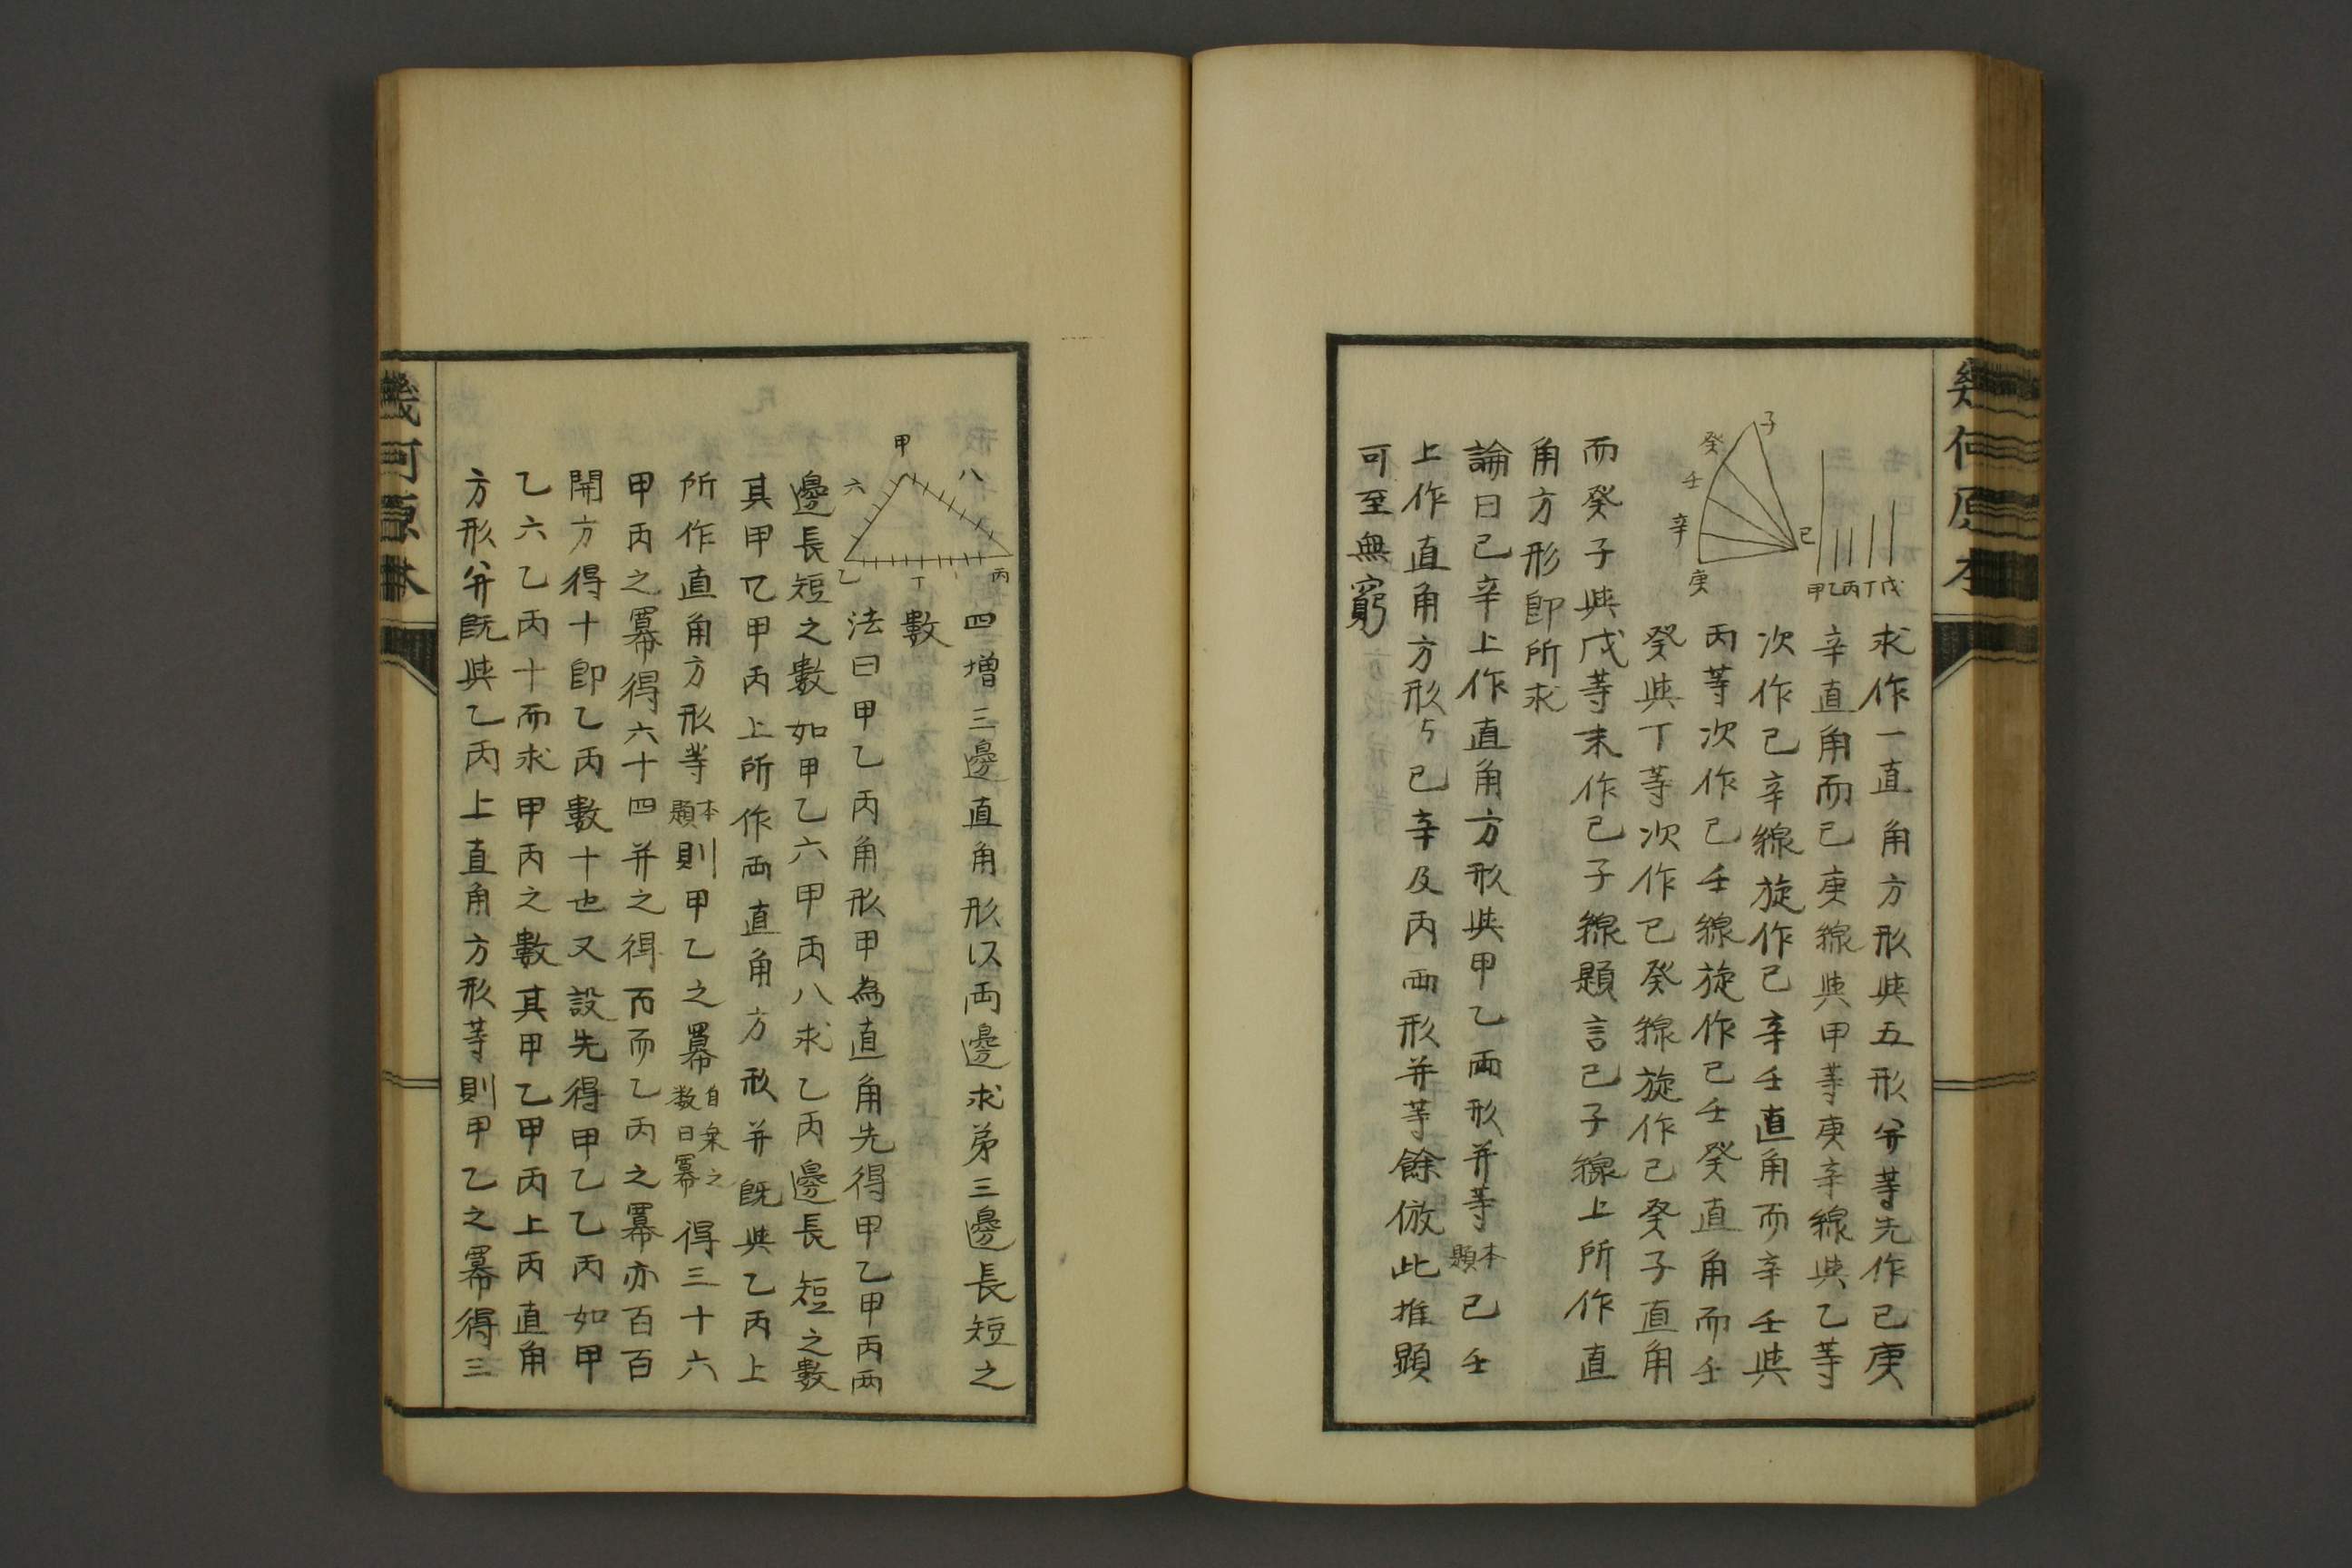 幾何原本
子
癸
壬
辛
庚
己
甲乙丙丁戊
求作一直角方形與五形并等先作己庚
辛直角而己庚線與甲等庚辛線與乙等
次作己辛線旋作己辛壬直角而辛壬與
丙等次作己壬線旋作己壬癸直角而壬
癸與丁等次作己癸線旋作己癸子直角
而癸子與戊等末作己子線題言己子線上所作直
角方形即所求
論曰己辛上作直角方形與甲乙兩形并等本題己壬
上作直角方形與己辛及丙兩形并等餘倣此推顯
可至無窮
甲
八
六
乙
丁
丙
四增三邊直角形以兩邊求第三邊長短之
數
法曰甲乙丙角形甲為直角先得甲乙甲丙兩
邊長短之數如甲乙六甲丙八求乙丙邊長短之數
其甲乙甲丙上所作兩直角方形并既與乙丙上
所作直角方形等本題則甲乙之冪自乘之數曰冪得三十六
甲丙之冪得六十四并之得百而乙丙之冪亦百百
開方得十即乙丙數十也又設先得甲乙乙丙如甲
乙六乙丙十而求甲丙之數其甲乙甲丙上兩直角
方形并既與乙丙上直角方形等則甲乙之冪得三
幾何原本